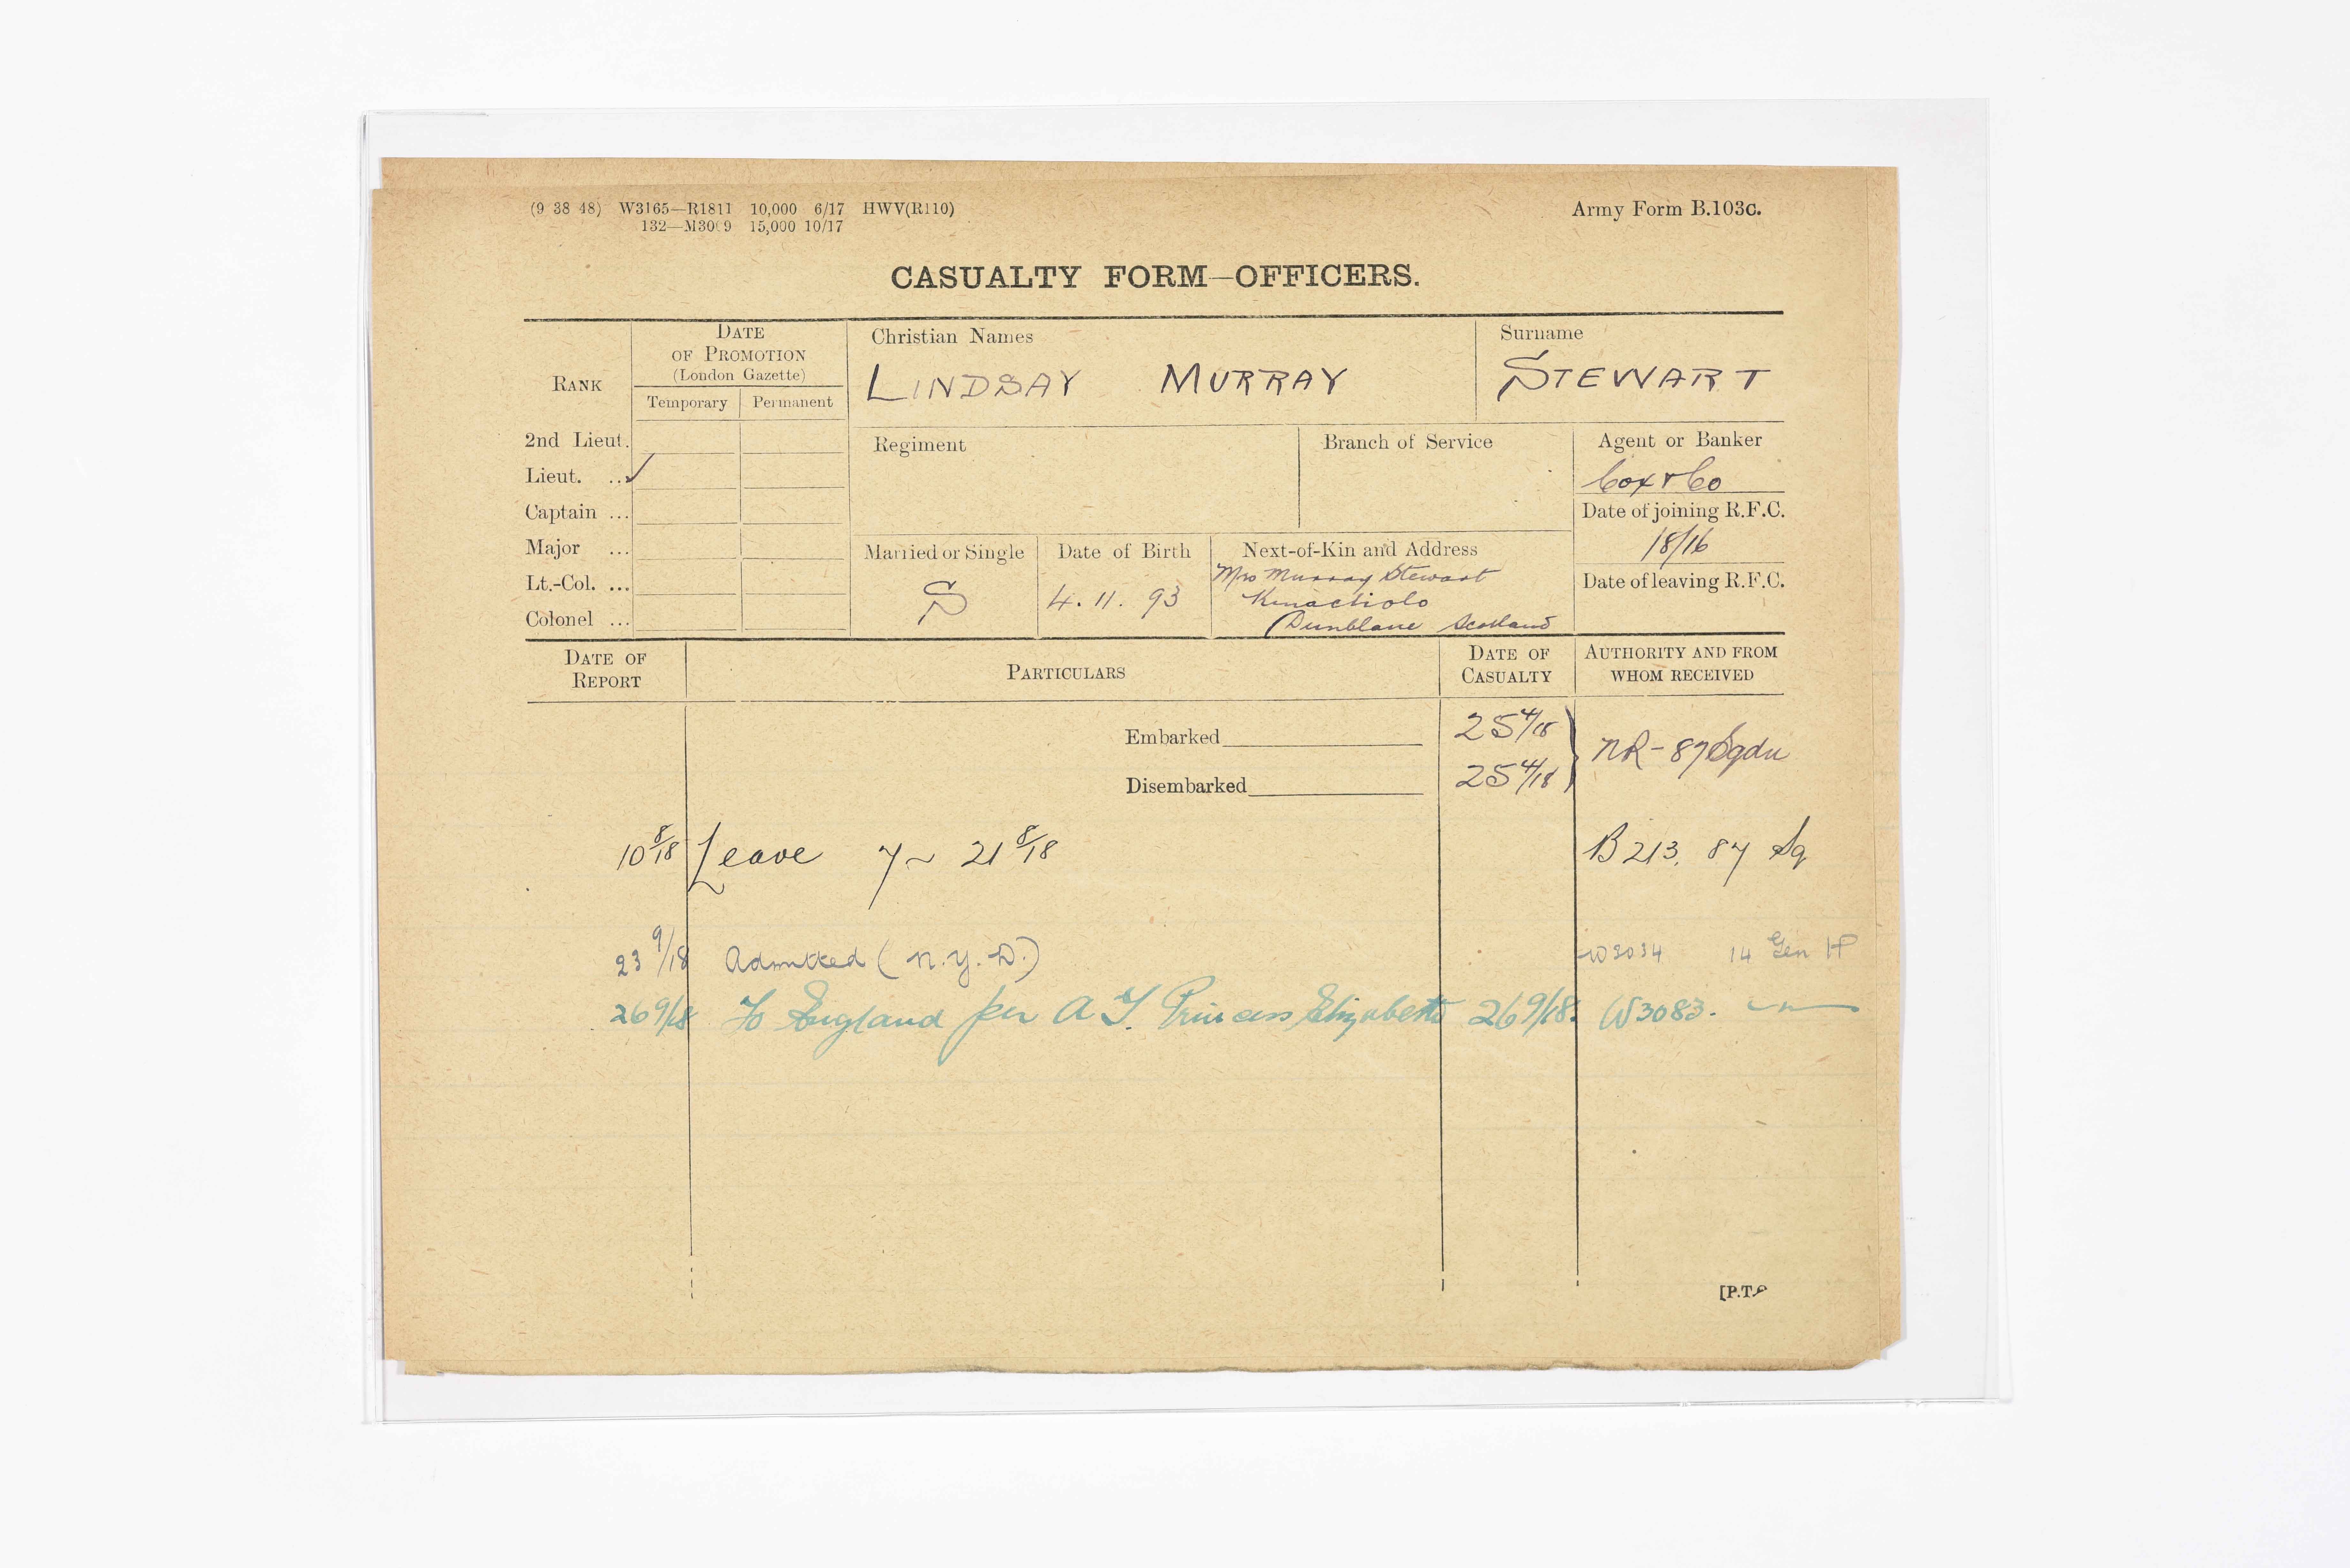 (9 38 48) W3165—R1811 10,000 6/17 HWV(R110)
132—M3009 15,000 10/17
Army Form B.103c.
CASUALTY FORM—OFFICERS.
RANK
DATE OF PROMOTION (London Gazette)
Temporary Permanent
Christian Names
LINDSAY MURRAY
Surname
STEWART
2nd Lieut.
Lieut. .. ✓
Captain ...
Major ...
Lt.-Col. ...
Colonel ...
Regiment
Branch of Service
Agent or Banker
Cox & Co
Date of joining R.F.C.
18/16
Date of leaving R.F.C.
Married or Single
S
Date of Birth
4. 11. 93
Next-of-Kin and Address
Mrs Murray Stewart
Dunblane Scotland
DATE OF REPORT
PARTICULARS
DATE OF CASUALTY
AUTHORITY AND FROM WHOM RECEIVED
Embarked 25 4/18
Disembarked 25 4/18
NR - 87 Sqdn
10 8/18 Leave 7 ~ 21 8/18 B 213. 87 Sq
23 9/18 Admitted (N.Y.D.) W3034 14 Gen H
26 9/18 To England per A T. Princess Elizabeth 26 9/18. W3083. —"—
[P.T.O